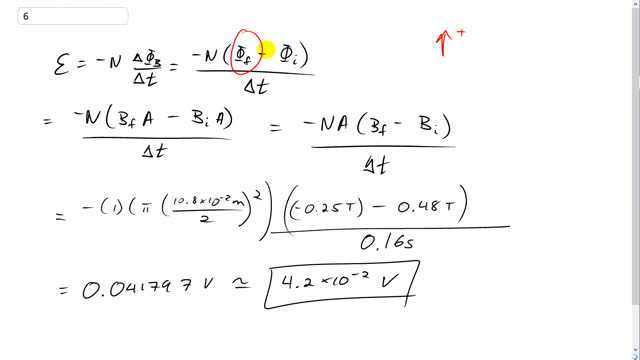 6
ℰ = -N ΔΦ_B/Δt = -N(Φ_f - Φ_i)/Δt ↑ +
= -N(B_f A - B_i A)/Δt = -NA(B_f - B_i)/Δt
= -(1)(π(10.8×10⁻²m/2)²)((-0.25T) - 0.48T)/0.16s
= 0.041797 V ≃ 4.2×10⁻² V